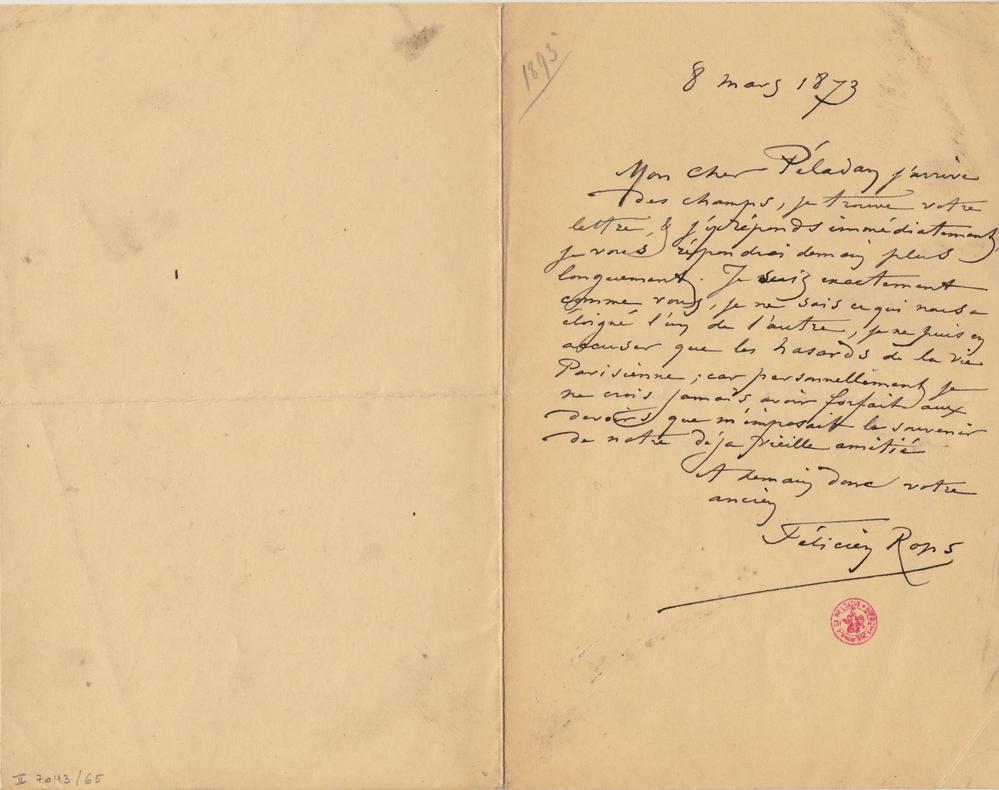 1893
8 mars 1873
Mon cher Péladan j'arrive
des champs, je trouve votre
lettre, & j'y réponds immédiatement,
je vous répondrai demain plus
longuement. Je suis exactement
comme vous, je ne sais ce qui nous a
éloigné l'un de l'autre, je ne puis en
accuser que les hasards de la vie
Parisienne ; car personnellement je
ne crois jamais avoir forfait aux
devoirs que m'imposait le souvenir
de notre déja vieille amitié
A demain donc votre
ancien
Félicien Rops
II 7043/65